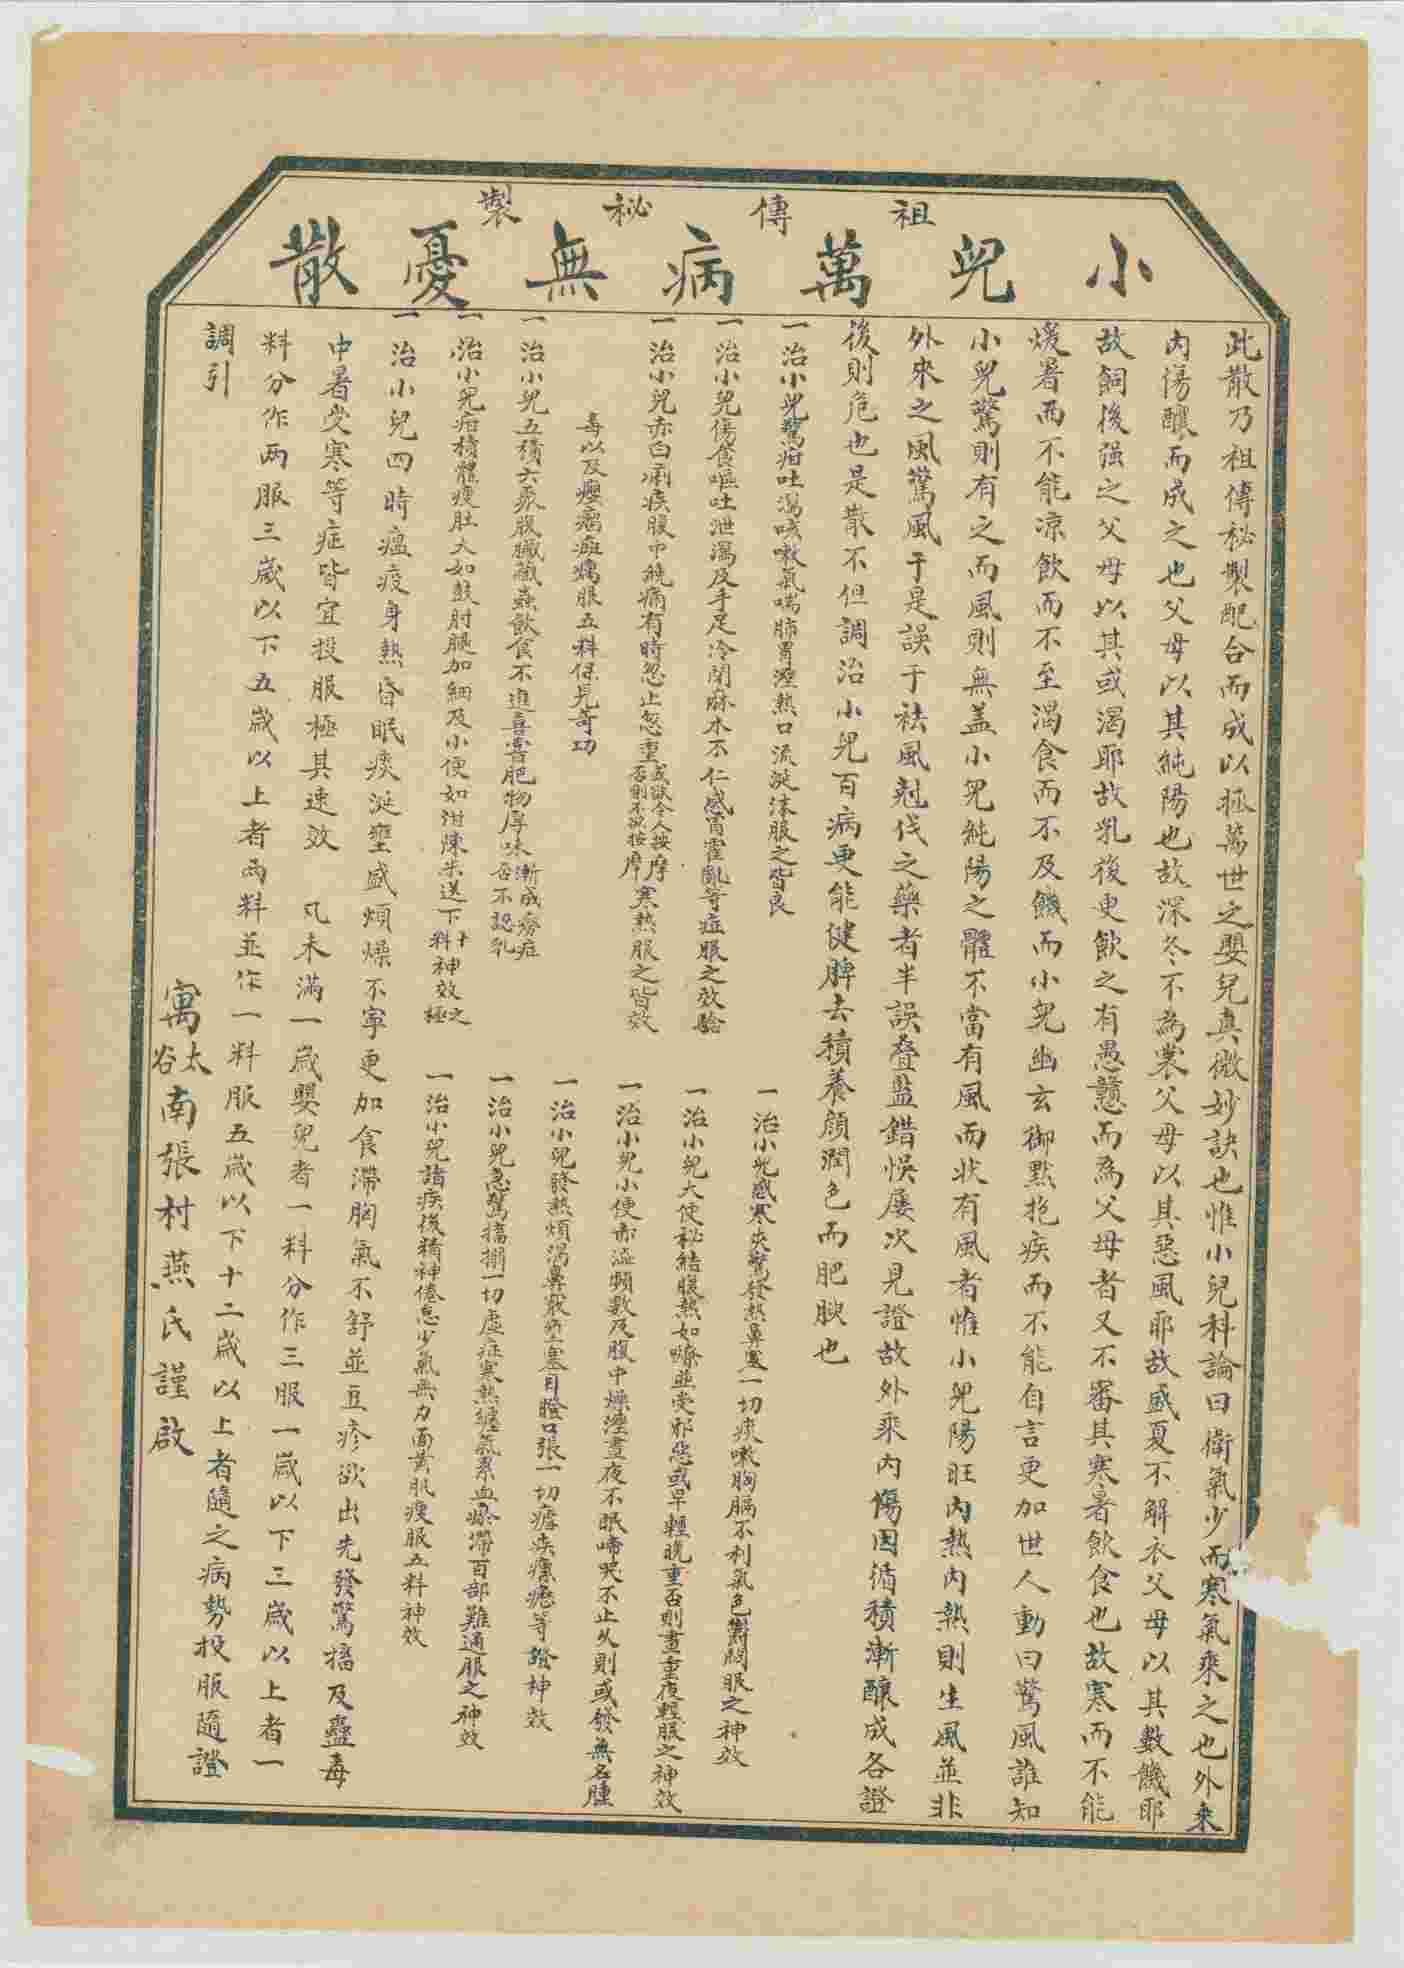 祖傳秘製
小兒萬病無憂散
此散乃祖傳秘製配合而成以拯萬世之嬰兒真微妙訣也惟小兒科論曰衛氣少而寒氣乘之也外來
內傷釀而成之也父母以其純陽也故深冬不為裳父母以其惡風耶故盛夏不解衣父母以其數饑耶
故飼後强之父母以其或渴耶故乳後更飲之有愚戇而為父母者又不審其寒暑飲食也故寒而不能
煖暑而不能凉飲而不至渴食而不及饑而小兒幽玄御點抱疾而不能自言更加世人動曰驚風誰知
小兒驚則有之而風則無盖小兒純陽之體不當有風而状有風者惟小兒陽旺內熱內熱則生風並非
外來之風驚風于是誤于祛風尅伐之藥者半誤叠盖錯悞屡次見證故外乘內傷因循積漸釀成各證
後則危也是散不但調治小兒百病更能健脾去積養顔潤色而肥腴也
一治小兒驚疳吐瀉咳嗽氣喘肺胃溼熱口流涎沫服之皆良
一治小兒感寒夾驚發熱鼻塞一切痰嗽胸膈不利氣色鬱悶服之神效
一治小兒傷食嘔吐泄瀉及手足冷閉麻木不仁感冒霍亂等症服之效驗
一治小兒大便秘結腹熱如燎並受邪惡或早輕晚重否則晝重夜輕服之神效
一治小兒赤白痢疾腹中繞痛有時忽止忽重或欲令人按摩否則不欲按摩寒熱服之皆效
一治小兒小便赤澁頻數及腹中燥溼晝夜不眠啼哭不止久則或發無名腫
毒以及癭瘤癍瘍服五料保見奇功
一治小兒發熱煩渴鼻竅壅塞目瞪口張一切瘧疾瘰癧等證神效
一治小兒五積六聚腹臌蟲飲食不進喜嗜肥物厚味漸成癆症否不認乳
一治小兒急驚搐搦一切虛症寒熱纏氣累血瘀滯百部難通服之神效
一治小兒疳積體瘦肚大如鼓肘腿加細及小便如泔陳米送下十料神效之極
一治小兒諸疾後精神倦怠少氣無力面黃肌瘦服五料神效
一治小兒四時瘟疫身熱昏眠痰涎壅盛煩燥不寧更加食滯胸氣不舒並豆疹欲出先發驚搐及蠱毒
中暑受寒等症皆宜投服極其速效　凡未滿一歲嬰兒者一料分作三服一歲以下三歲以上者一
料分作两服三歲以下五歲以上者两料並作一料服五歲以下十二歲以上者隨之病勢投服隨證
調引
寓太谷南張村燕氏謹啟